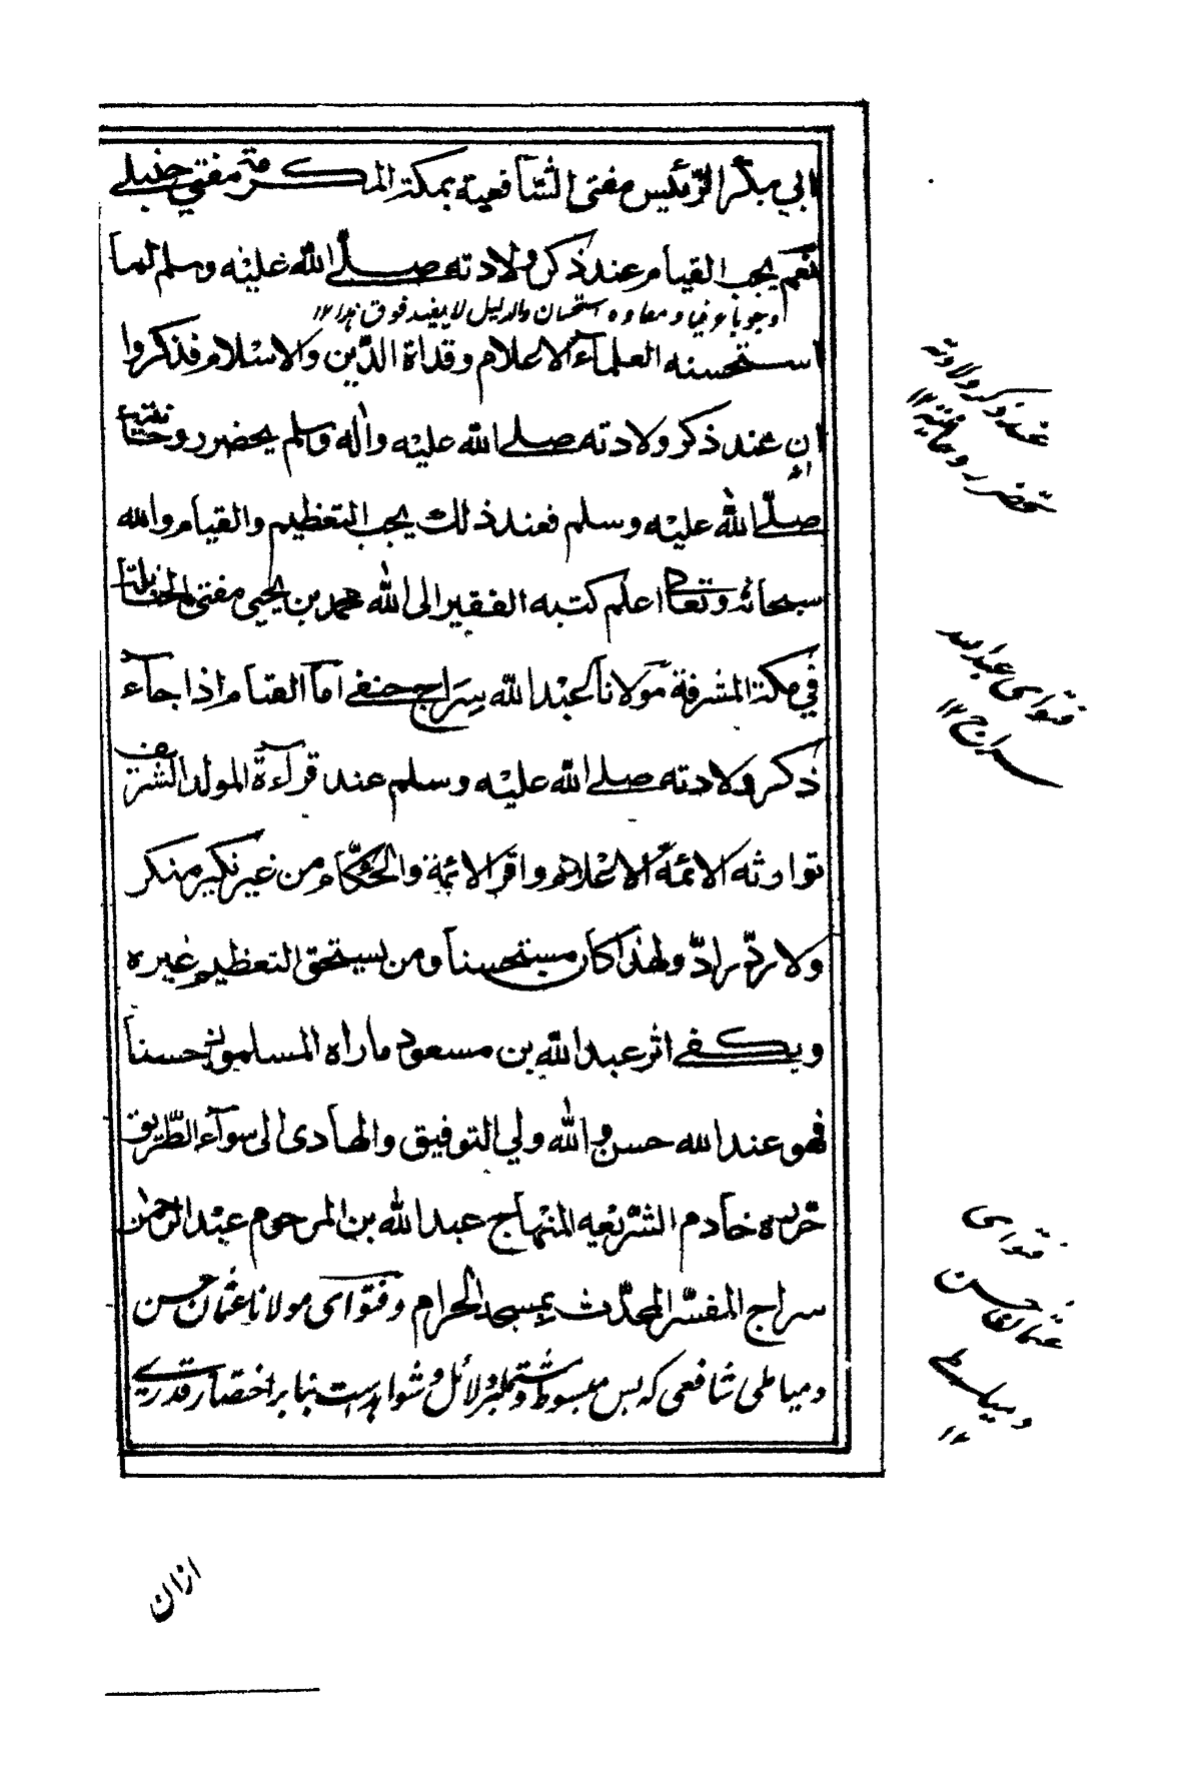 ابي بكر الرّئيس مفتى الشّافعية بمكة المكرمة مفتي حنبلي
نعم يجب القيام عند ذكر ولادته صلّے اللّٰه عليْه وسلم لما
وجوبا عرفيا و استحسان والدليل لا يفيد فوق هذا ١٢
استحسنه العلمآء الاعلام وقداة الدّين والاسْلام فذكروا
ان عند ذكر ولادته صلے اللّٰه عليْه واٰله وسلم يحضر روحانيّته
صلّے اللّٰه عليْه وسلم فعند ذلك يجب التعظيم والقيام واللّٰه
سبحانه وتعالے اعلم كتبه الفقير الى اللّٰه محمد بن يحيى مفتى الحنابلة
في مكة المشرفة مولانا عبْد اللّٰه سِرَاج حنفے امّا القيام اذا جآء
ذكر ولادته صلے اللّٰه عليْه وسلم عند قرآءة المولد الشّريف
توارثه الائمّة الاعْلام واقرّ الائمة والحُكّام من غير نكير منكر
ولا ردّ رادّ ولهٰذا كان مستحسنا ومن يستحق التعظيم غيره
ويكفے اثر عبد اللّٰه بن مسعود ما راٰه المسلمون حسنا
فهو عند اللّٰه حسن واللّٰه ولي التوفيق والهادى الى سوآء الطّريق
حرّره خادم الشّريْعه المنْهاج عبد اللّٰه بن المرحوم عبْد الرحمٰن
سراج المفسّر المحدّث بمسجد الحرام وفتوآى مولانا عثمان حسن
دمياطى شافعى كه بس مبسوط ومشتملبر دلائل و شواهدست بنا بر اختصار قدرے
عند ذكر ولادته
تحضر روحانيته ١٢
فتواى عبد اللّٰه
سراج ١٢
فتواى
عثمان حسن
دمياطى
١٢
ازان